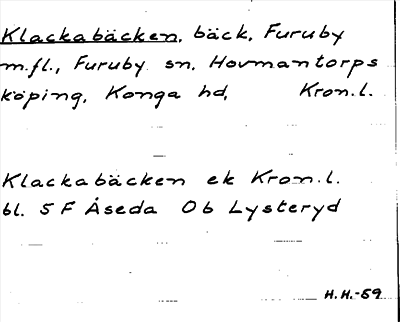 Klackabäcken, bäck, Furuby
m.fl., Furuby sn, Hovmantorps
köping, Konga hd, Kron.l.
Klackabäcken ek Kron.l.
bl. 5 F Åseda Ob Lysteryd
H.H.-59